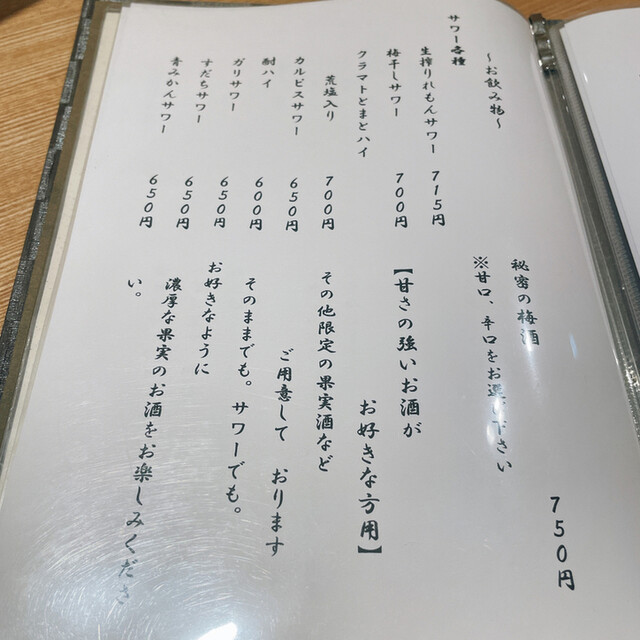 〜お飲み物〜
サワー各種
生搾りれもんサワー 715円
梅干しサワー 700円
クラマトとまとハイ
荒塩入り 700円
カルピスサワー 650円
酎ハイ 600円
ガリサワー 650円
すだちサワー 650円
青みかんサワー 650円
秘密の梅酒 750円
※甘口、辛口をお選び下さい
【甘さの強いお酒が
お好きな方用】
その他限定の果実酒など
ご用意して おります
そのままでも。サワーでも。
お好きなように
濃厚な果実のお酒をお楽しみくださ
い。